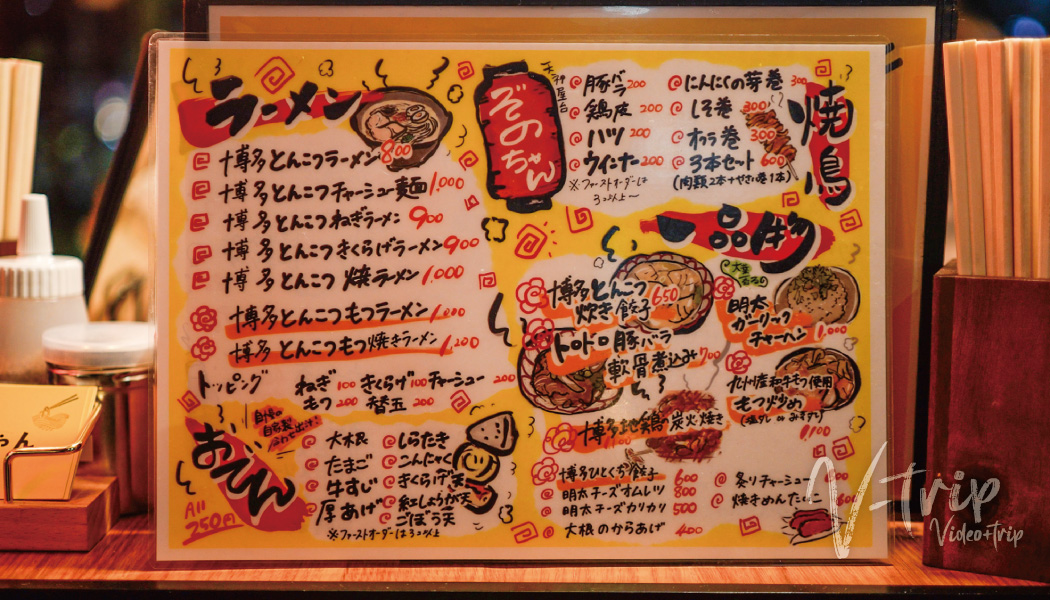 ラーメン
博多とんこつラーメン 800
博多とんこつチャーシュー麺 1,000
博多とんこつねぎラーメン 900
博多とんこつきくらげラーメン 900
博多とんこつ 焼ラーメン 1,000
博多とんこつもつラーメン 1,000
博多とんこつもつ焼きラーメン 1,200
トッピング
ねぎ 100 きくらげ 100 チャーシュー 200
もつ 200 替玉 200
おでん
All 250円
大根
たまご
牛すじ
厚あげ
しらたき
こんにゃく
きくらげ天
紅しょうが天
ごぼう天
※ファーストオーダーは3コ以上
天神屋台
ぞのちゃん
焼鳥
豚バラ 200
鶏皮 200
ハツ 200
ウィンナー 200
※ファーストオーダーは
3コ以上〜
にんにくの芽巻 300
しそ巻 300
オクラ巻 300
3本セット 600
(肉類2本+やさい巻1本)
一品物
博多とんこつ
炊き餃子 650
トロトロ豚バラ
軟骨煮込み 700
博多地鶏の炭火焼き
博多ひとくち餃子 600
明太チーズオムレツ 800
明太チーズカリカリ 500
大根のからあげ 400
明太
ガーリック
チャーハン 1,000
九州産和牛モツ使用
もつ炒め
1,100
炙りチャーシュー
焼きめんたいこ 600
V-trip
Video+trip